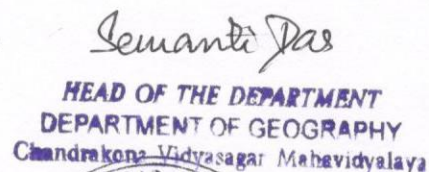 Semanti Das
HEAD OF THE DEPARTMENT
DEPARTMENT OF GEOGRAPHY
Chandrakona Vidyasagar Mahavidyalaya